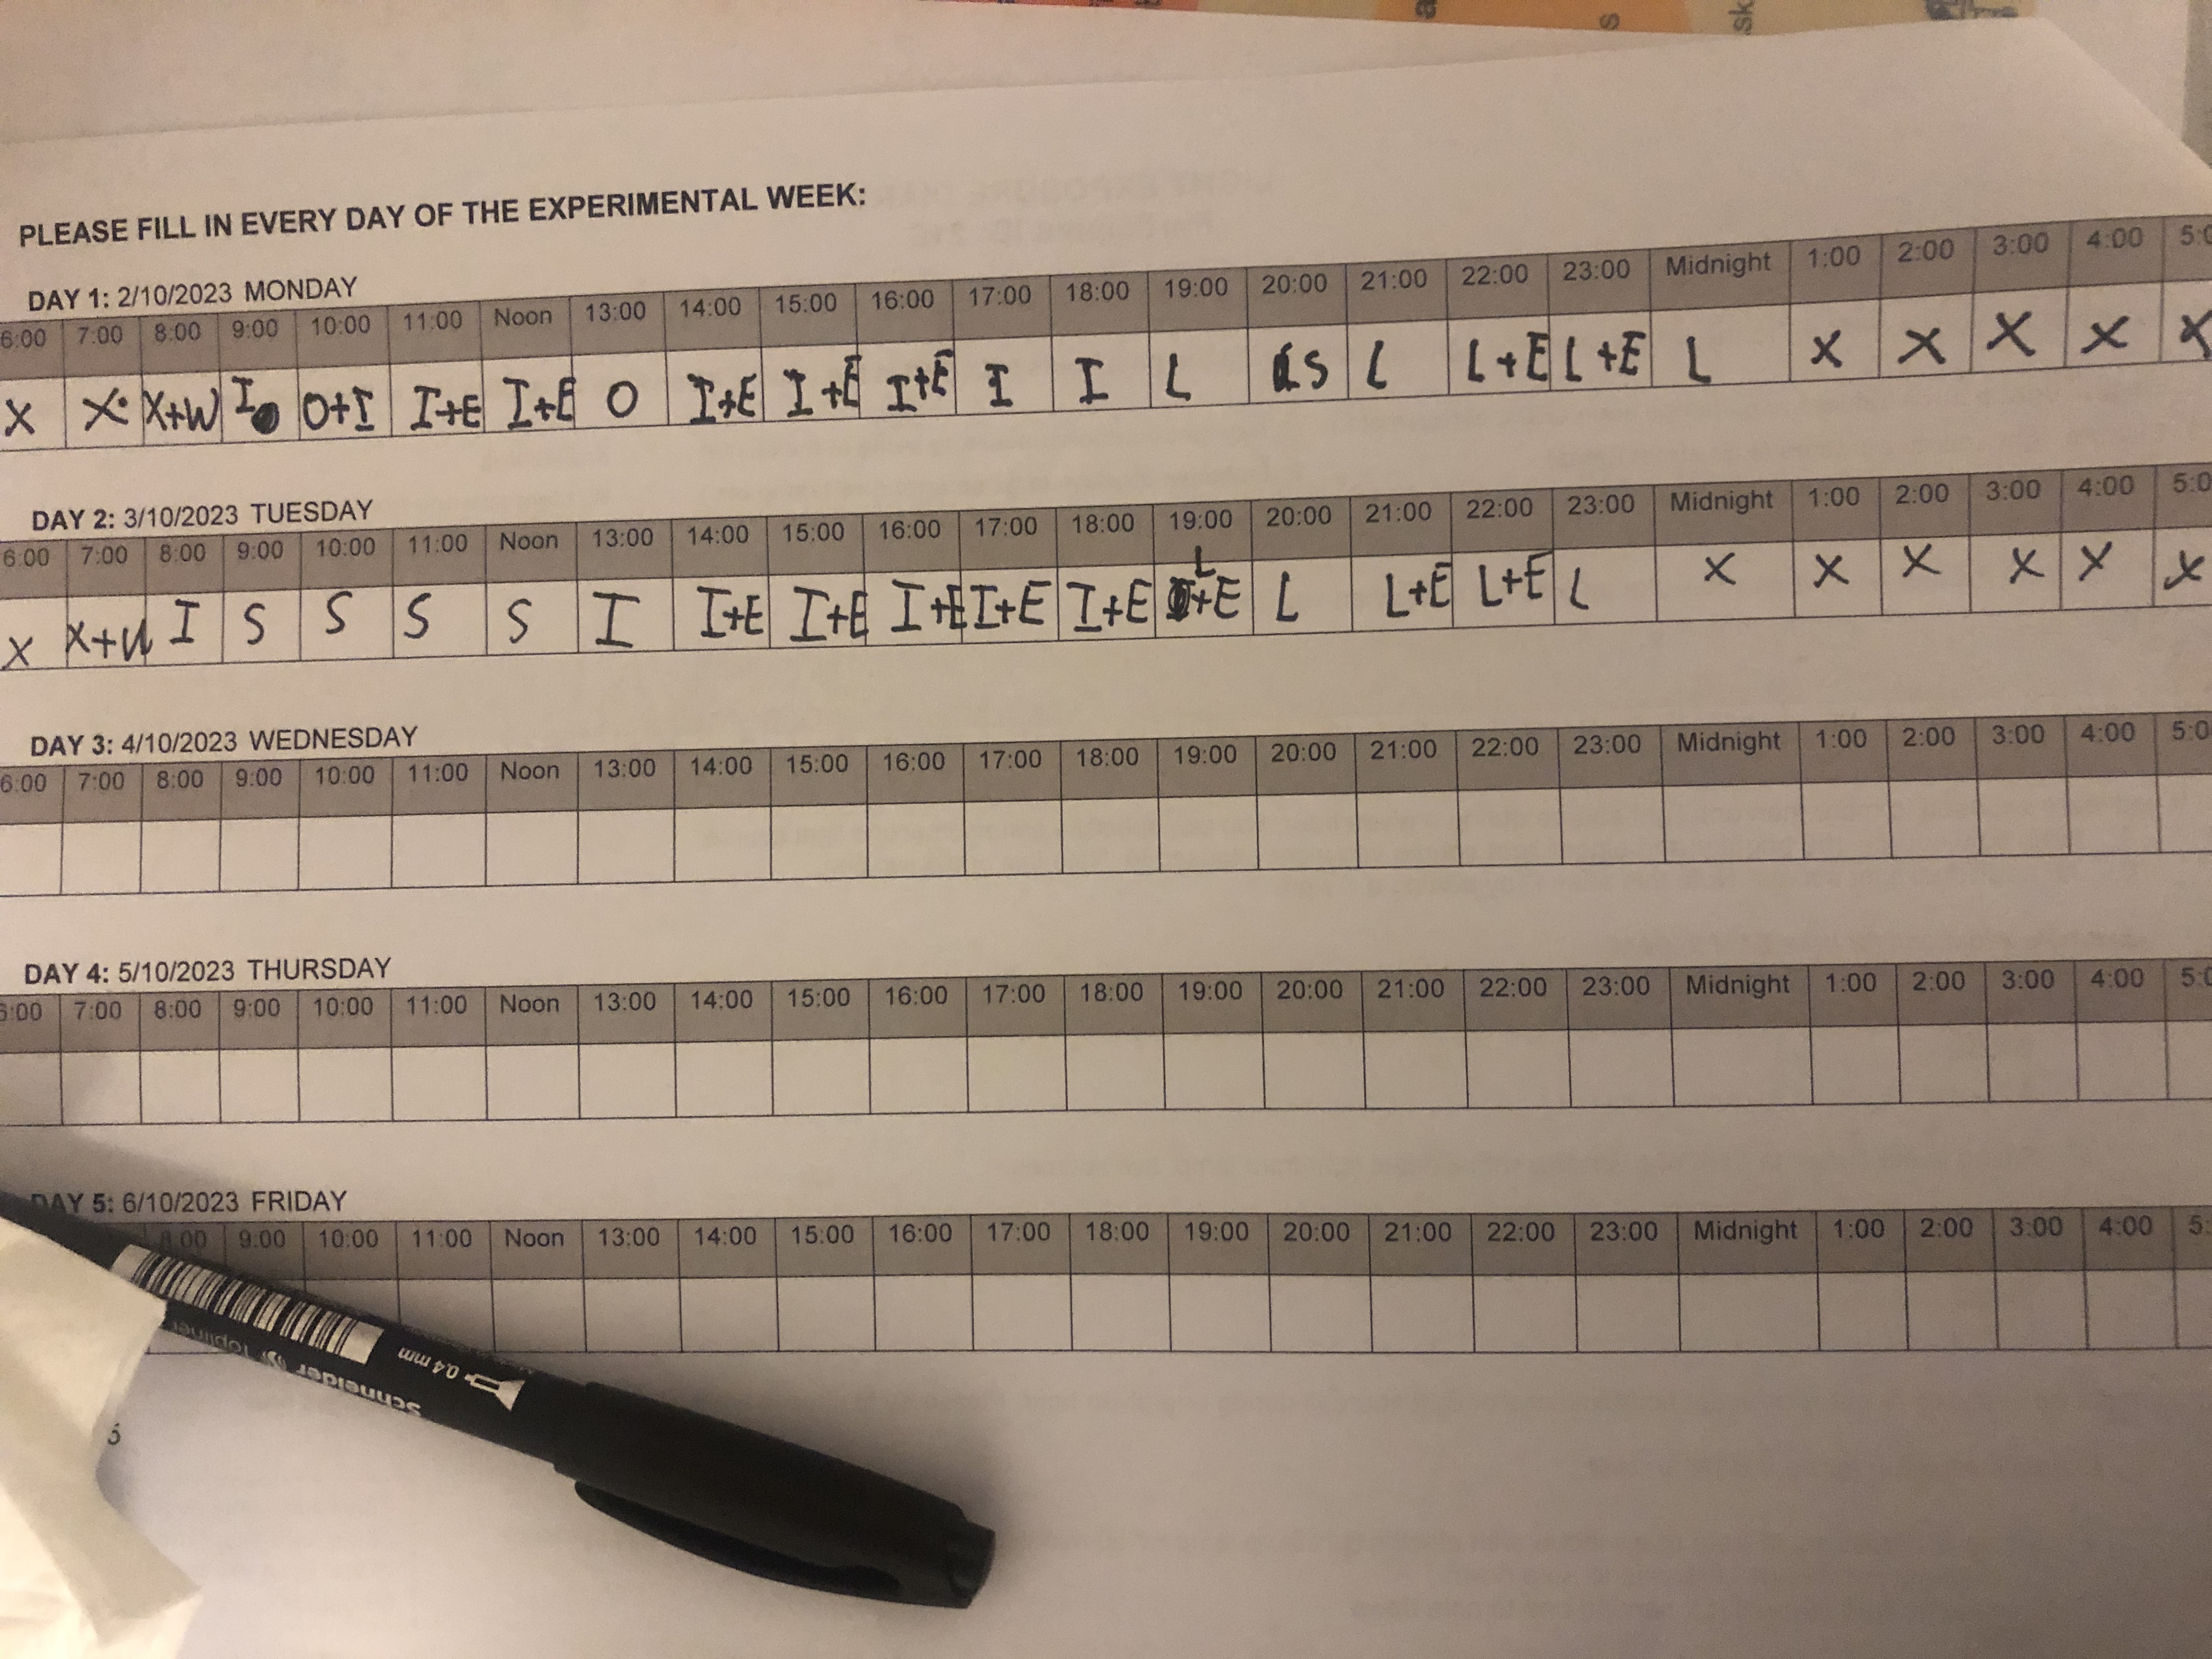 PLEASE FILL IN EVERY DAY OF THE EXPERIMENTAL WEEK:
DAY 1: 2/10/2023 MONDAY
6:00 7:00 8:00 9:00 10:00 11:00 Noon 13:00 14:00 15:00 16:00 17:00 18:00 19:00 20:00 21:00 22:00 23:00 Midnight 1:00 2:00 3:00 4:00
X X X+W I O+I I+E I+E O I+E I+E I+E I I L S L L+E L+E L X X X X X
DAY 2: 3/10/2023 TUESDAY
6:00 7:00 8:00 9:00 10:00 11:00 Noon 13:00 14:00 15:00 16:00 17:00 18:00 19:00 20:00 21:00 22:00 23:00 Midnight 1:00 2:00 3:00 4:00
X X+W I S S S S I I+E I+E I+E I+E I+E L+E L L+E L+E L X X X X X X
DAY 3: 4/10/2023 WEDNESDAY
6:00 7:00 8:00 9:00 10:00 11:00 Noon 13:00 14:00 15:00 16:00 17:00 18:00 19:00 20:00 21:00 22:00 23:00 Midnight 1:00 2:00 3:00 4:00
DAY 4: 5/10/2023 THURSDAY
6:00 7:00 8:00 9:00 10:00 11:00 Noon 13:00 14:00 15:00 16:00 17:00 18:00 19:00 20:00 21:00 22:00 23:00 Midnight 1:00 2:00 3:00 4:00
DAY 5: 6/10/2023 FRIDAY
9:00 10:00 11:00 Noon 13:00 14:00 15:00 16:00 17:00 18:00 19:00 20:00 21:00 22:00 23:00 Midnight 1:00 2:00 3:00 4:00
topliner
schneider
0.4 mm